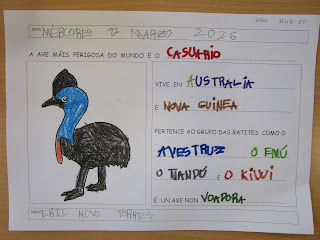 DATA: MÉRCORES 12 MARZO 2025
A AVE MÁIS PERIGOSA DO MUNDO É O CASUARIO
VIVE EN AUSTRALIA
E NOVA GUINEA
PERTENCE AO GRUPO DAS RATITES COMO O
AVESTRUZ O EMÚ
O ÑANDÚ E O KIWI
É UN AVE NON VOADORA
NOME: ERIS NOVO TORRES